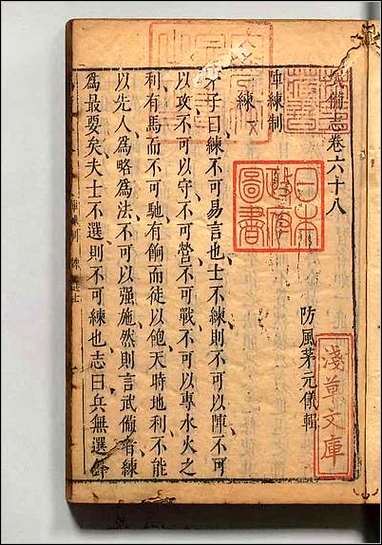 武備志卷六十八
防風茅元儀輯
陣練制
練一
茅子曰練不可易言也士不練則不可以陣不可
以攻不可以守不可營不可戰不可以專水火之
利有馬而不可馳有餉而徒以飽天時地利不能
以先人爲略爲法不可以强施然則言武備者練
爲最要矣夫士不選則不可練也志曰兵無選鋒
日本
政府
圖書
淺草文庫